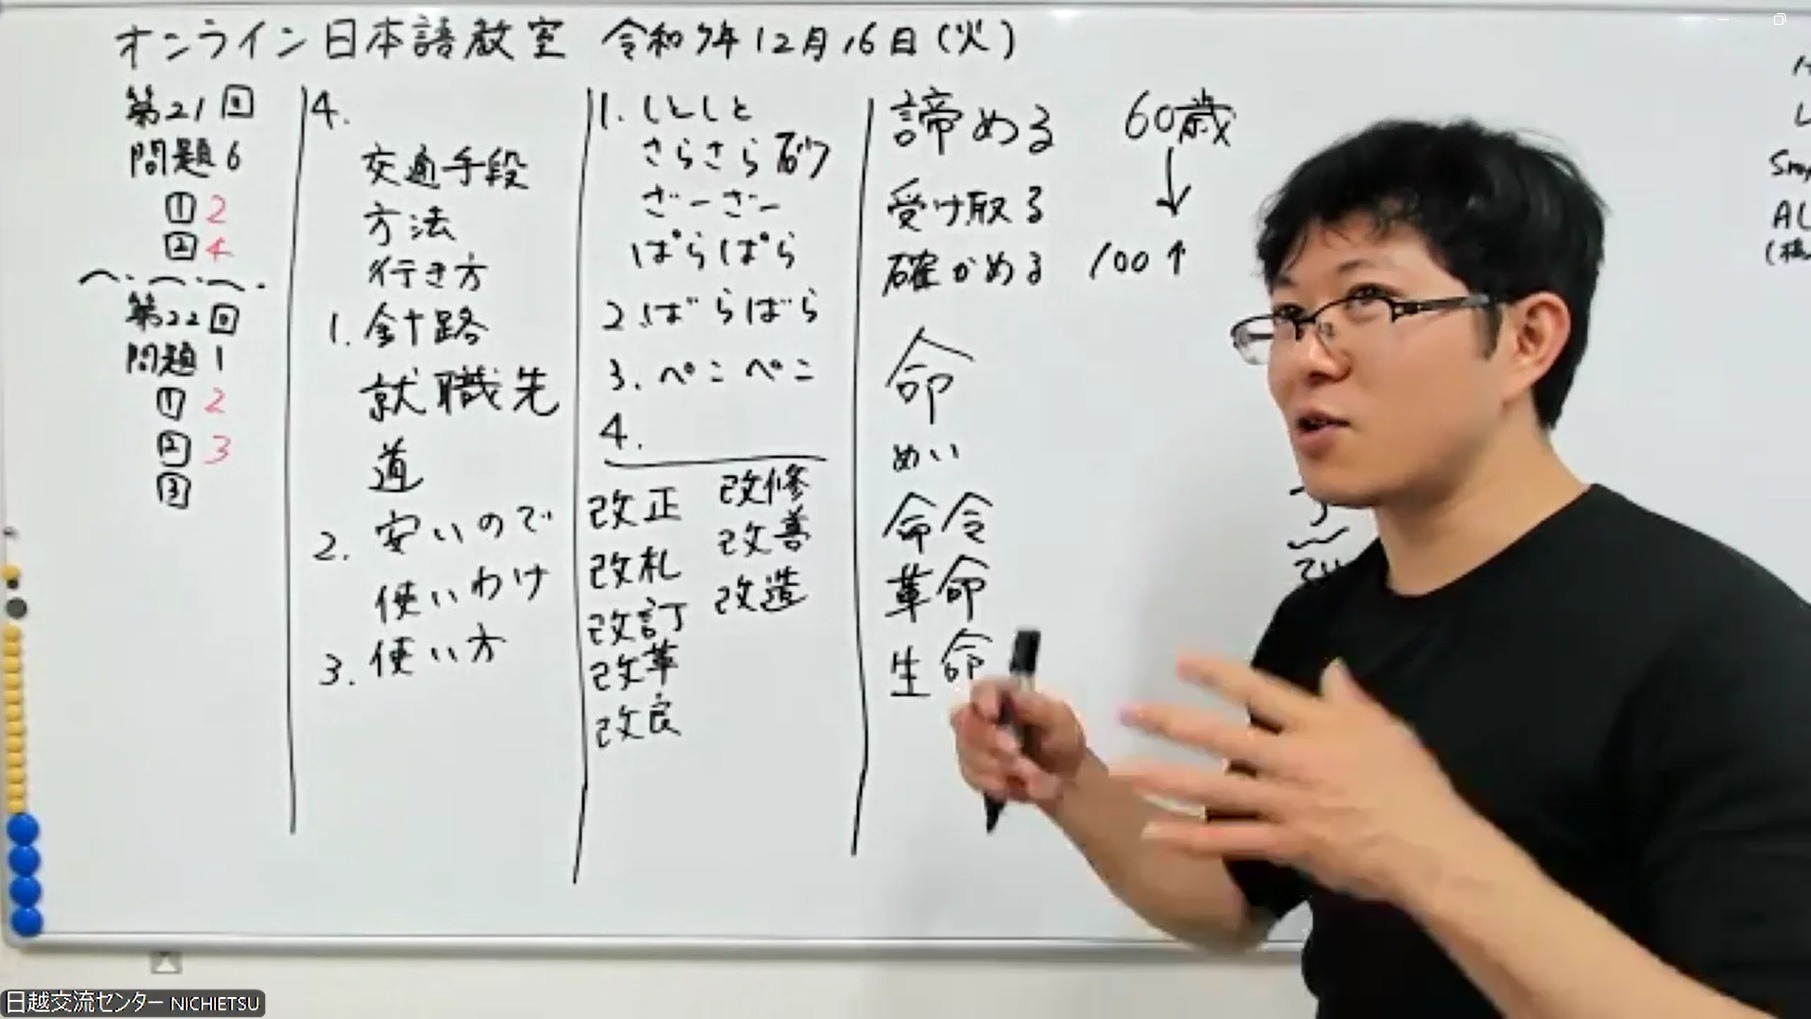 オンライン日本語教室 令和7年12月16日(火)
第21回
問題6
① 2
② 4
第22回
問題1
① 2
② 3
③
4.
交通手段
方法
行き方
1. 針路
就職先
道
2. 安いので
使いわけ
3. 使い方
1. しとしと
さらさら 砂
ざーざー
ぱらぱら
2. ばらばら
3. ぺこぺこ
4.
改正
改札
改訂
改革
改良
改修
改善
改造
諦める
受け取る
確かめる
60歳
↓
100↑
命
めい
命令
革命
生命
日越交流センター NICHIETSU